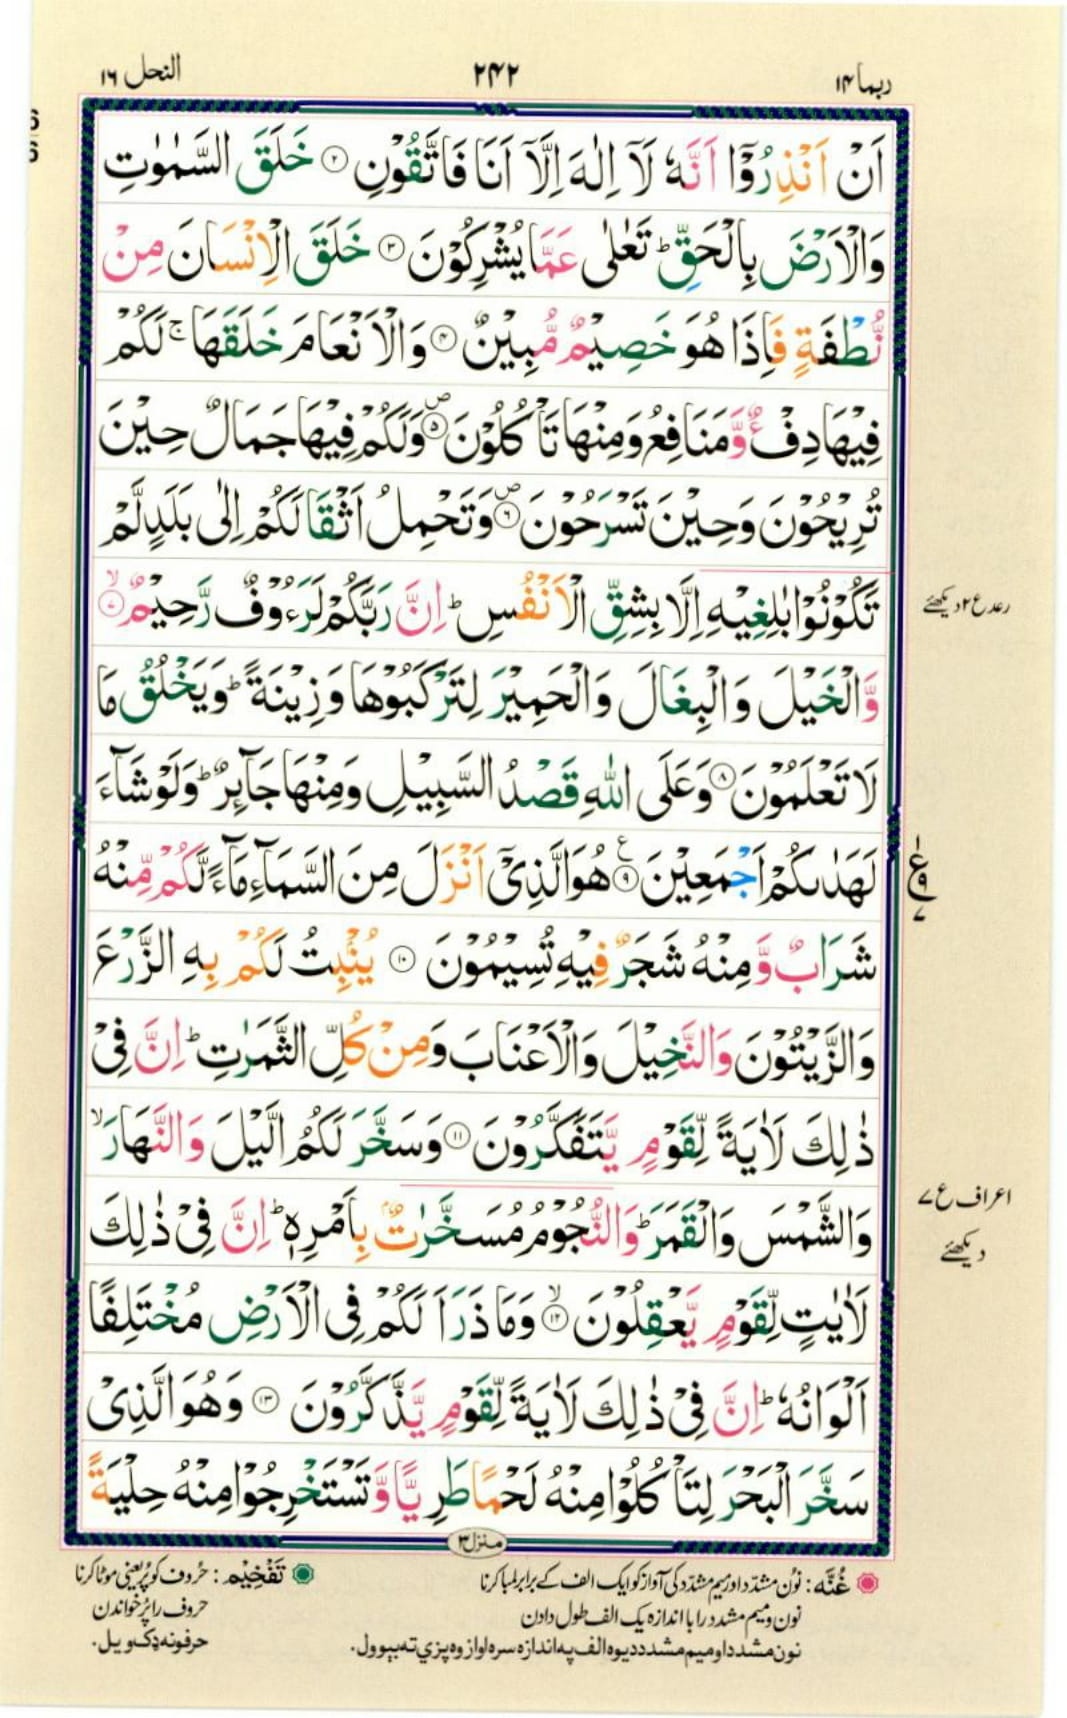 ربما ۱۴
۲۴۲
النحل ۱۶
اَنْ اَنْذِرُوْۤا اَنَّهٗ لَاۤ اِلٰهَ اِلَّاۤ اَنَا فَاتَّقُوْنِ ۲ خَلَقَ السَّمٰوٰتِ
وَالْاَرْضَ بِالْحَقِّ ؕ تَعٰلٰى عَمَّا يُشْرِكُوْنَ ۳ خَلَقَ الْاِنْسَانَ مِنْ
نُّطْفَةٍ فَاِذَا هُوَ خَصِيْمٌ مُّبِيْنٌ ۴ وَالْاَنْعَامَ خَلَقَهَا ۚ لَكُمْ
فِيْهَا دِفْءٌ وَّمَنَافِعُ وَمِنْهَا تَاْكُلُوْنَ ۵ وَلَكُمْ فِيْهَا جَمَالٌ حِيْنَ
تُرِيْحُوْنَ وَحِيْنَ تَسْرَحُوْنَ ۶ وَتَحْمِلُ اَثْقَالَكُمْ اِلٰى بَلَدٍ لَّمْ
تَكُوْنُوْا بٰلِغِيْهِ اِلَّا بِشِقِّ الْاَنْفُسِ ؕ اِنَّ رَبَّكُمْ لَرَءُوْفٌ رَّحِيْمٌ ۷
رعد ع ۲ دیکھئے
وَّالْخَيْلَ وَالْبِغَالَ وَالْحَمِيْرَ لِتَرْكَبُوْهَا وَزِيْنَةً ؕ وَيَخْلُقُ مَا
لَا تَعْلَمُوْنَ ۸ وَعَلَى اللّٰهِ قَصْدُ السَّبِيْلِ وَمِنْهَا جَآئِرٌ ؕ وَلَوْ شَآءَ
لَهَدٰىكُمْ اَجْمَعِيْنَ ۹ هُوَ الَّذِىْۤ اَنْزَلَ مِنَ السَّمَآءِ مَآءً لَّكُمْ مِّنْهُ
ع ۹ ۷
شَرَابٌ وَّمِنْهُ شَجَرٌ فِيْهِ تُسِيْمُوْنَ ۱۰ يُنْۢبِتُ لَكُمْ بِهِ الزَّرْعَ
وَالزَّيْتُوْنَ وَالنَّخِيْلَ وَالْاَعْنَابَ وَمِنْ كُلِّ الثَّمَرٰتِ ؕ اِنَّ فِىْ
ذٰلِكَ لَاٰيَةً لِّقَوْمٍ يَّتَفَكَّرُوْنَ ۱۱ وَسَخَّرَ لَكُمُ الَّيْلَ وَالنَّهَارَ ۙ
وَالشَّمْسَ وَالْقَمَرَ ؕ وَالنُّجُوْمُ مُسَخَّرٰتٌۢ بِاَمْرِهٖ ؕ اِنَّ فِىْ ذٰلِكَ
اعراف ع ۷
دیکھئے
لَاٰيٰتٍ لِّقَوْمٍ يَّعْقِلُوْنَ ۱۲ وَمَا ذَرَاَ لَكُمْ فِى الْاَرْضِ مُخْتَلِفًا
اَلْوَانُهٗ ؕ اِنَّ فِىْ ذٰلِكَ لَاٰيَةً لِّقَوْمٍ يَّذَّكَّرُوْنَ ۱۳ وَهُوَ الَّذِىْ
سَخَّرَ الْبَحْرَ لِتَاْكُلُوْا مِنْهُ لَحْمًا طَرِيًّا وَّتَسْتَخْرِجُوْا مِنْهُ حِلْيَةً
منزل ۳
غُنَّه : نُون مشدّد اور میم مشدّد کی آواز کو ایک الف کے برابر لمبا کرنا
نون و میم مشدد را با اندازه یک الف طول دادن
نون مشدد او میم مشدد دیوه الف په اندازه سره اواز وه پزي ته بیوول.
تَفْخِيْم : حُروف کو پُر یعنی موٹا کرنا
حروف را پُر خواندن
حرفونه ډک ویل.